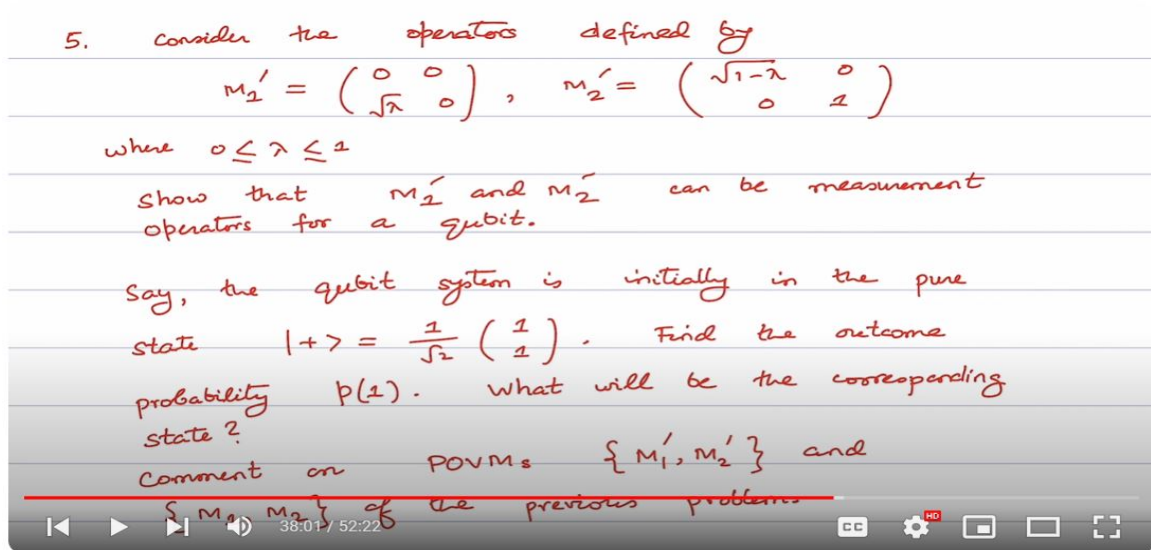 5. Consider the operators defined by
M₁′ = ( 0 0 ; √λ 0 ) , M₂′ = ( √1-λ 0 ; 0 1 )
where 0 ≤ λ ≤ 1
Show that M₁′ and M₂′ can be measurement
operators for a qubit.
Say, the qubit system is initially in the pure
state |+> = 1/√2 ( 1 ; 1 ) . Find the outcome
probability p(1). What will be the corresponding
state ?
Comment on POVMs { M₁′, M₂′ } and
{ M₁, M₂ } of the previous problems
38:01 / 52:22 CC HD